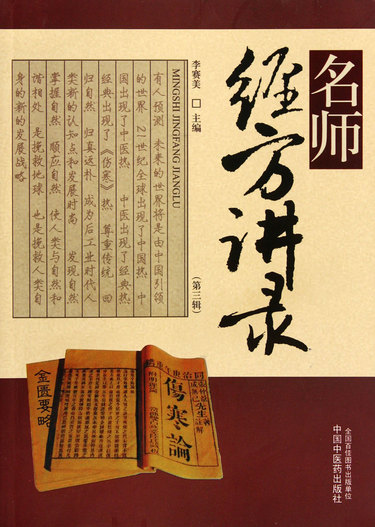 名师
经方讲录
(第三辑)
李赛美 □ 主编
MINGSHI JINGFANG JIANGLU
有人预测 未来的世界将是由中国引领
的世界 21世纪全球出现了中国热 中
国出现了中医热 中医出现了经典热
经典出现了《伤寒》热 尊重传统 回
归自然 归真返朴 成为后工业时代人
类新的认知点和发展时尚 发现自然
掌握自然 顺应自然 使人类与自然和
谐相处 是挽救地球 也是挽救人类自
身的新的发展战略
傷寒論
金匮要略
全国百佳图书出版单位
中国中医药出版社